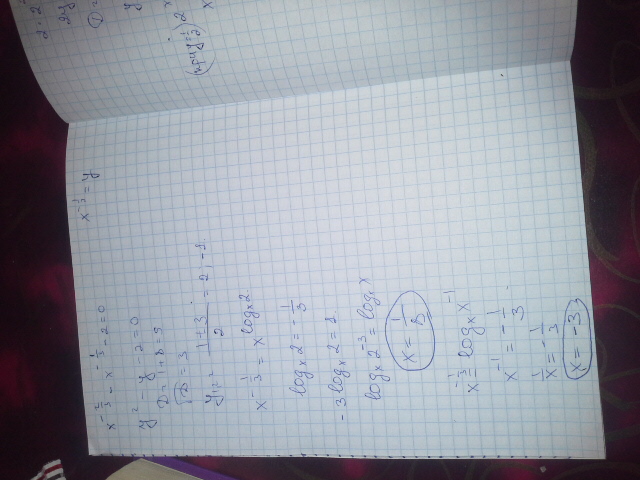 x^{-\frac{2}{3}} - x^{-\frac{1}{3}} - 2 = 0
x^{-\frac{1}{3}} = y
y^2 - y - 2 = 0
D = 1 + 8 = 9
\sqrt{D} = 3
y_{1,2} = \frac{1 ± 3}{2} = 2; -1.
x^{-\frac{1}{3}} = x^{\log_x 2}
\log_x 2 = -\frac{1}{3}
-3 \log_x 2 = 1
\log_x 2^{-3} = \log_x x
x = \frac{1}{8}
x^{-\frac{1}{3}} = \log_x x^{-1}
x^{-1} = -\frac{1}{3}
\frac{1}{x} = -\frac{1}{3}
x = -3